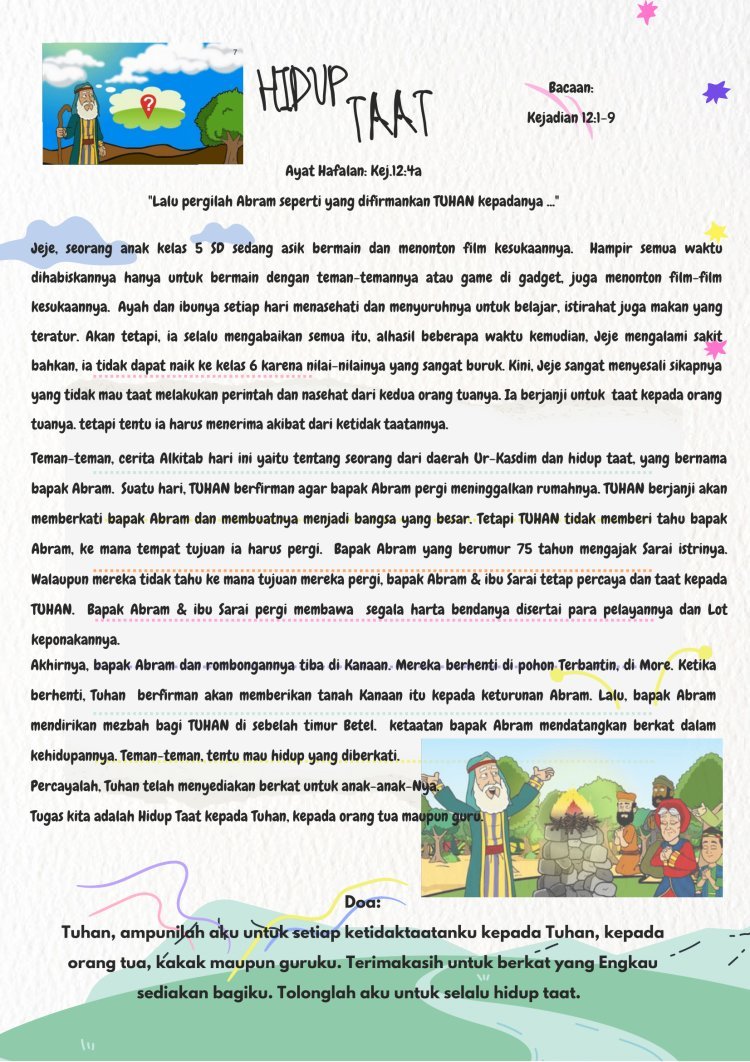 ?
HIDUP
TAAT
Bacaan:
Kejadian 12:1-9
Ayat Hafalan: Kej.12:4a
"Lalu pergilah Abram seperti yang difirmankan TUHAN kepadanya ..."
Jeje, seorang anak kelas 5 SD sedang asik bermain dan menonton film kesukaannya. Hampir semua waktu
dihabiskannya hanya untuk bermain dengan teman-temannya atau game di gadget, juga menonton film-film
kesukaannya. Ayah dan ibunya setiap hari menasehati dan menyuruhnya untuk belajar, istirahat juga makan yang
teratur. Akan tetapi, ia selalu mengabaikan semua itu, alhasil beberapa waktu kemudian, Jeje mengalami sakit
bahkan, ia tidak dapat naik ke kelas 6 karena nilai-nilainya yang sangat buruk. Kini, Jeje sangat menyesali sikapnya
yang tidak mau taat melakukan perintah dan nasehat dari kedua orang tuanya. Ia berjanji untuk taat kepada orang
tuanya. tetapi tentu ia harus menerima akibat dari ketidak taatannya.
Teman-teman, cerita Alkitab hari ini yaitu tentang seorang dari daerah Ur-Kasdim dan hidup taat, yang bernama
bapak Abram. Suatu hari, TUHAN berfirman agar bapak Abram pergi meninggalkan rumahnya. TUHAN berjanji akan
memberkati bapak Abram dan membuatnya menjadi bangsa yang besar. Tetapi TUHAN tidak memberi tahu bapak
Abram, ke mana tempat tujuan ia harus pergi. Bapak Abram yang berumur 75 tahun mengajak Sarai istrinya.
Walaupun mereka tidak tahu ke mana tujuan mereka pergi, bapak Abram & ibu Sarai tetap percaya dan taat kepada
TUHAN. Bapak Abram & ibu Sarai pergi membawa segala harta bendanya disertai para pelayannya dan Lot
keponakannya.
Akhirnya, bapak Abram dan rombongannya tiba di Kanaan. Mereka berhenti di pohon Terbantin, di More. Ketika
berhenti, Tuhan berfirman akan memberikan tanah Kanaan itu kepada keturunan Abram. Lalu, bapak Abram
mendirikan mezbah bagi TUHAN di sebelah timur Betel. ketaatan bapak Abram mendatangkan berkat dalam
kehidupannya. Teman-teman, tentu mau hidup yang diberkati.
Percayalah, Tuhan telah menyediakan berkat untuk anak-anak-Nya.
Tugas kita adalah Hidup Taat kepada Tuhan, kepada orang tua maupun guru.
Doa:
Tuhan, ampunilah aku untuk setiap ketidaktaatanku kepada Tuhan, kepada
orang tua, kakak maupun guruku. Terimakasih untuk berkat yang Engkau
sediakan bagiku. Tolonglah aku untuk selalu hidup taat.